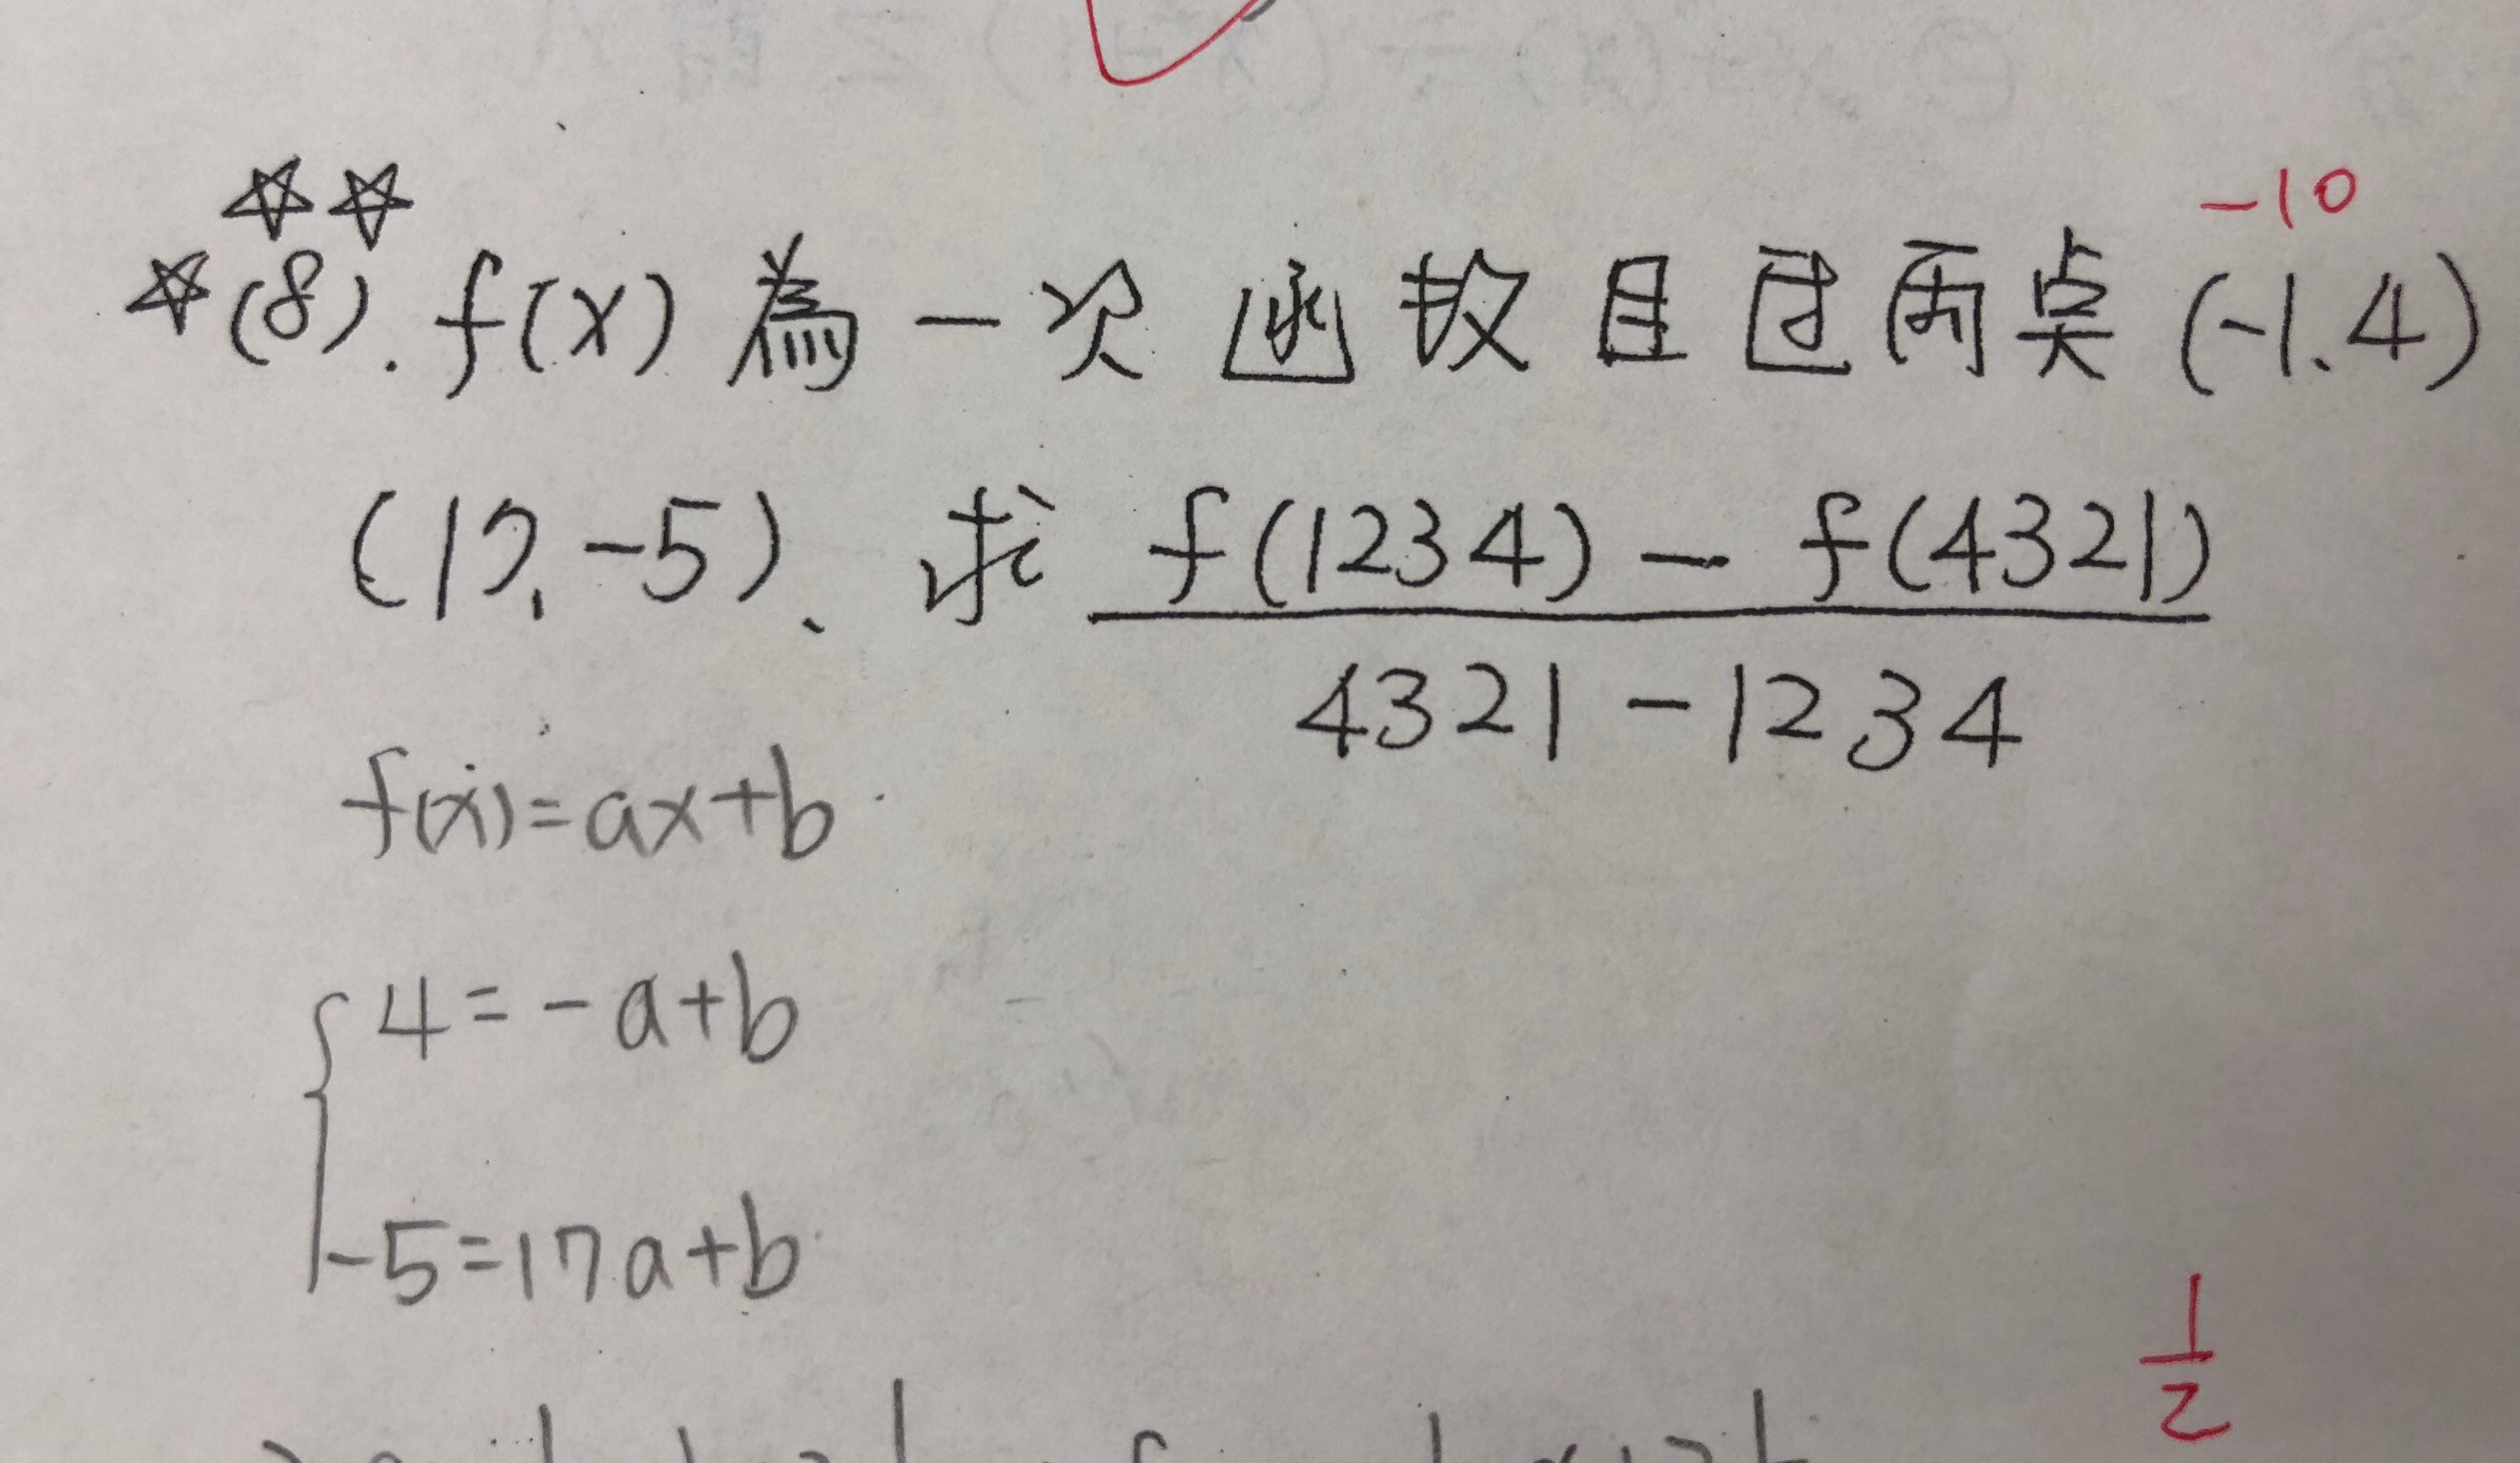 -10
(8). f(x) 為一次函数且过两点 (-1.4)
(17, -5)、求 f(1234) - f(4321)
4321 - 1234
f(x) = ax+b
4 = -a+b
-5 = 17a+b
1
2